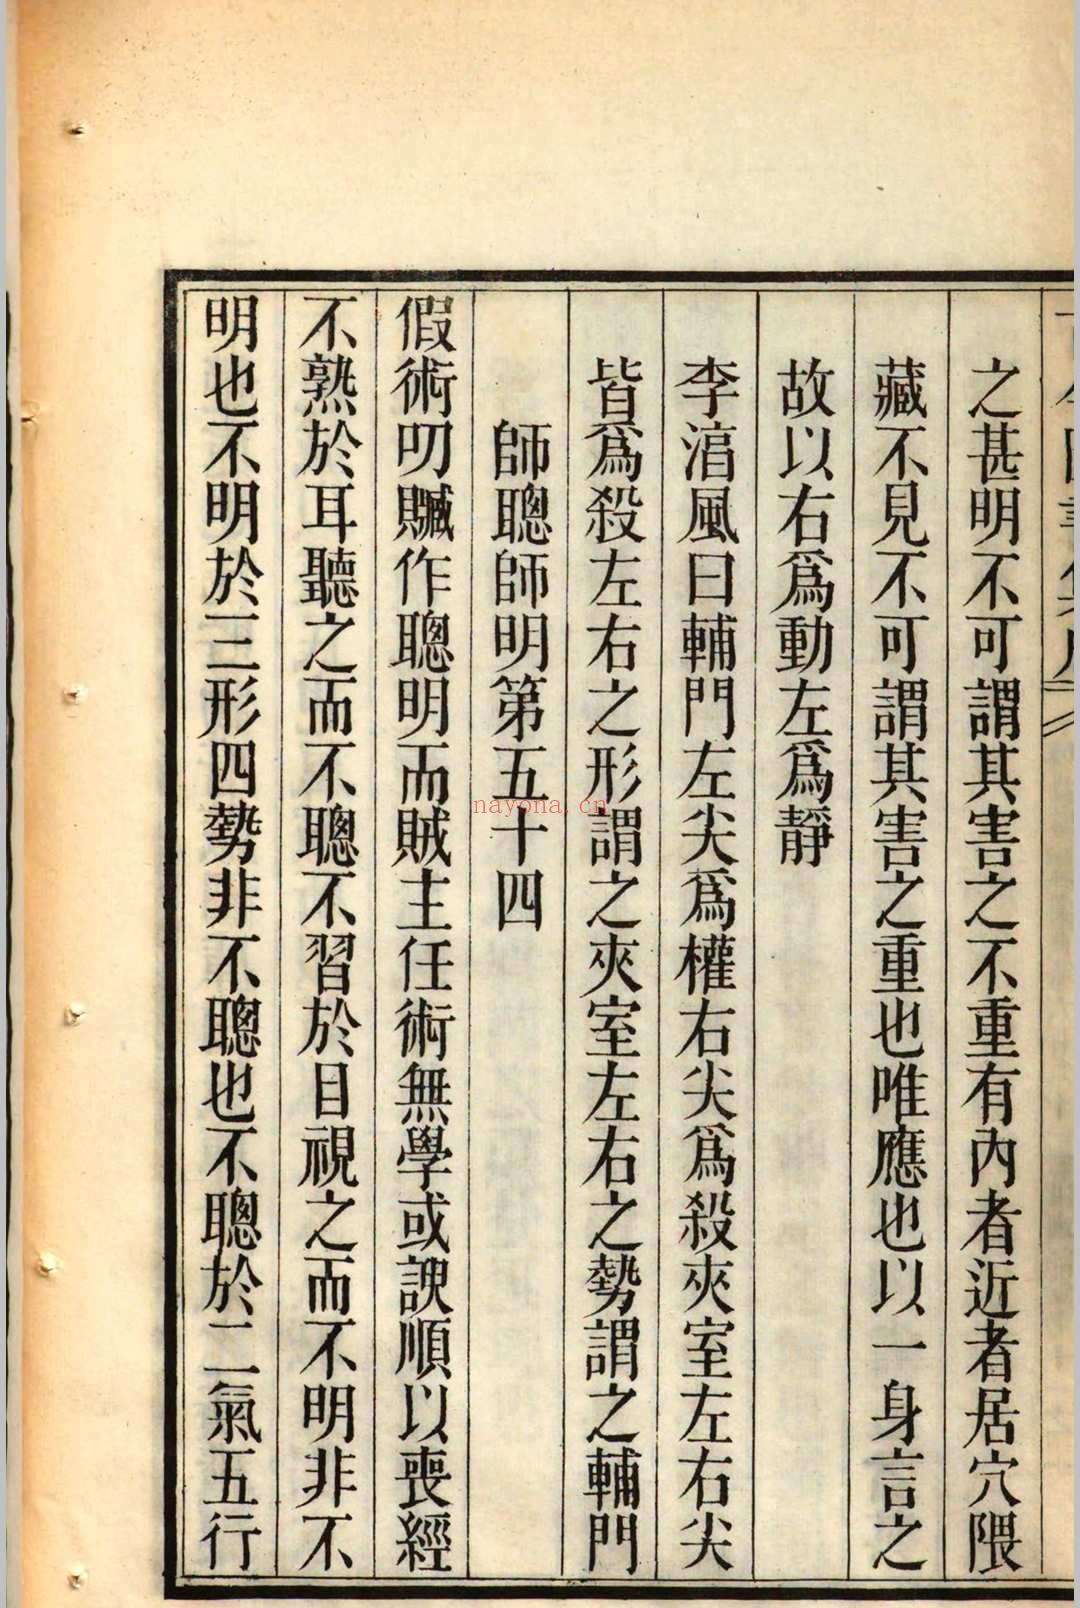 之甚明不可謂其害之不重有內者近者居穴隈
藏不見不可謂其害之重也唯應也以一身言之
故以右爲動左爲靜
李淯風曰輔門左尖爲權右尖爲殺夾室左右尖
皆爲殺左右之形謂之夾室左右之勢謂之輔門
師聰師明第五十四
假術叨贓作聰明而賊主任術無學或諛順以喪經
不熟於耳聽之而不聰不習於目視之而不明非不
明也不明於三形四勢非不聰也不聰於二氣五行
nayona.cn